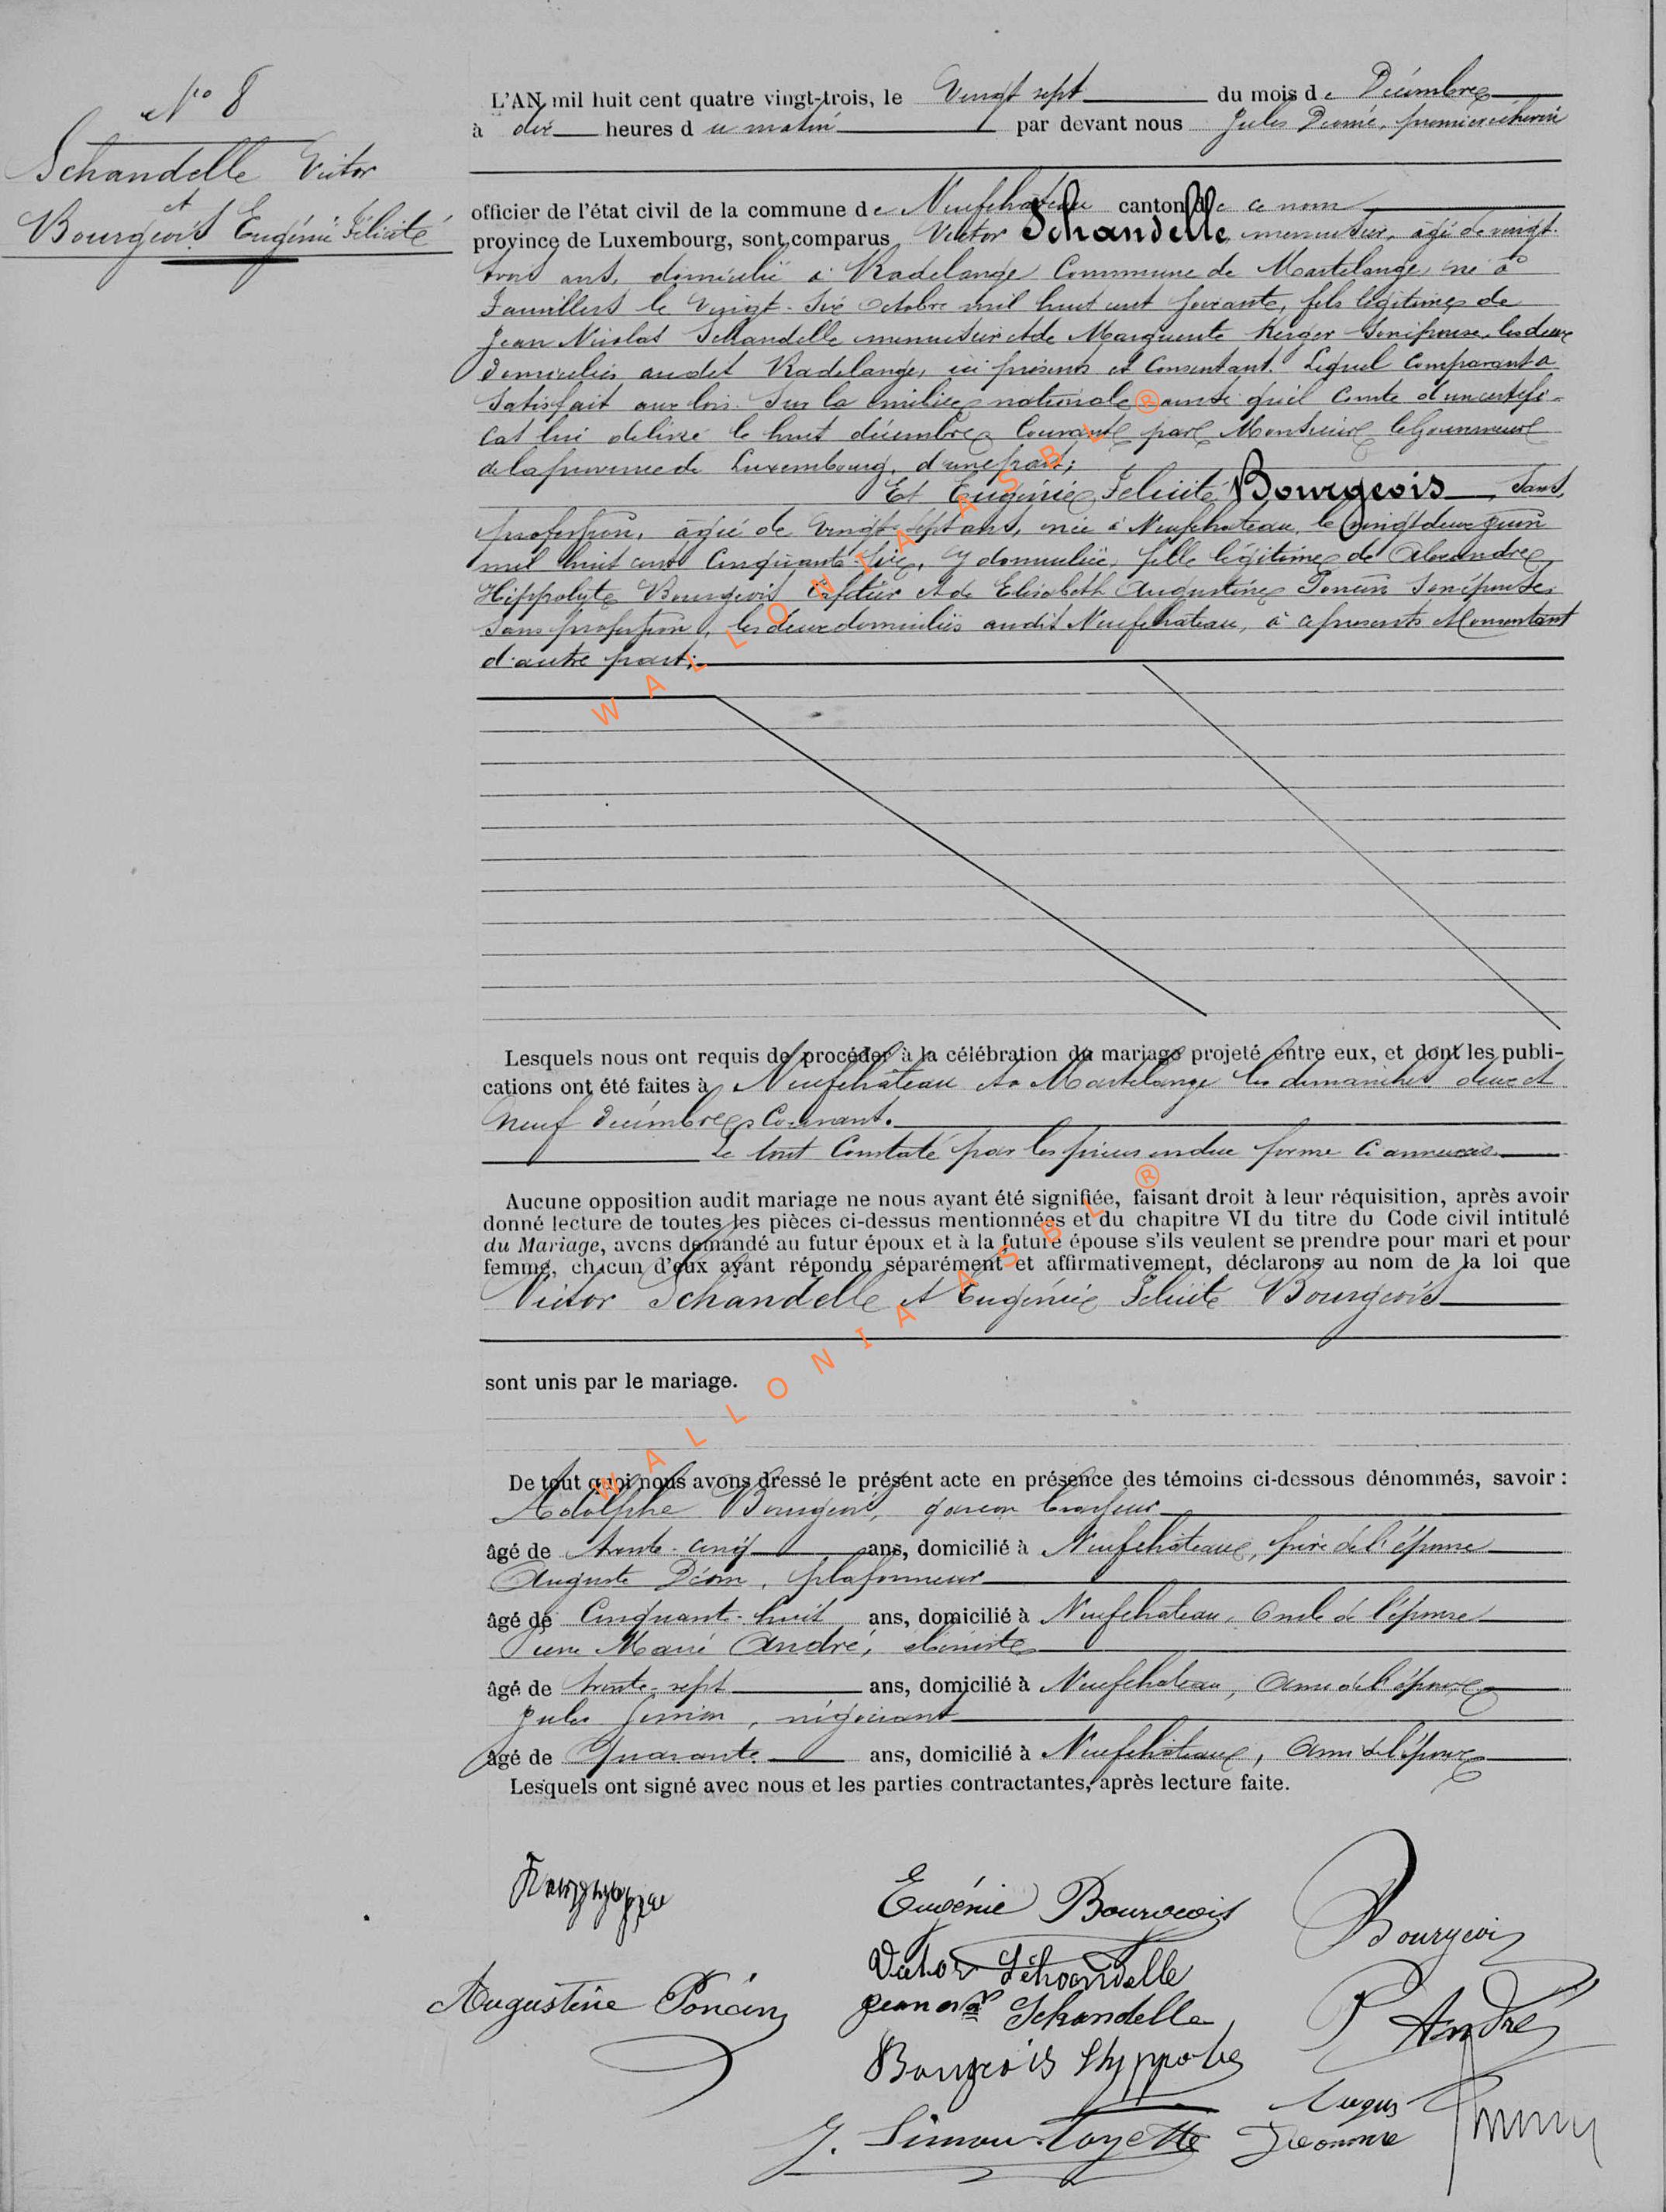 N° 8
Schandelle Victor
et
Bourgeois Eugénie Félicité
L'AN mil huit cent quatre vingt-trois, le Vingt sept du mois de Décembre
à dix heures du matin par devant nous Jules premier échevin
officier de l'état civil de la commune de Neufchâteau canton de ce nom
province de Luxembourg, sont comparus Victor Schandelle, menuisier, âgé de vingt
trois ans, domicilié à Radelange Commune de Martelange, né à
Fauvillers le vingt-six octobre mil huit cent soixante, fils légitime de
Jean Nicolas Schandelle menuisier et de Marguerite Kerger son épouse, les deux
domiciliés audit Radelange, ici présents et consentant. Lequel comparant a
satisfait aux lois sur la milice nationale ainsi qu'il conste d'un certifi-
cat lui délivré le huit décembre courant par Monsieur le Gouverneur
de la province de Luxembourg, d'une part;
Et Eugénie Félicité Bourgeois, sans
profession, âgée de vingt-sept ans, née à Neufchateau le vingt deux juin
mil huit cent cinquante-six, y domiciliée, fille légitime de Alexandre
Hippolyte Bourgeois et de Elisabeth Augustine Poncin son épouse
sans profession, les deux domiciliés audit Neufchâteau, à ce présents et consentant
d'autre part;
Lesquels nous ont requis de procéder à la célébration du mariage projeté entre eux, et dont les publi-
cations ont été faites à Neufchâteau et à Martelange les dimanches deux et
neuf décembre courant.
Le tout constaté par les pièces en due forme ci annexées
Aucune opposition audit mariage ne nous ayant été signifiée, faisant droit à leur réquisition, après avoir
donné lecture de toutes les pièces ci-dessus mentionnées et du chapitre VI du titre du Code civil intitulé
du Mariage, avons demandé au futur époux et à la future épouse s'ils veulent se prendre pour mari et pour
femme, chacun d'eux ayant répondu séparément et affirmativement, déclarons au nom de la loi que
Victor Schandelle et Eugénie Félicité Bourgeois
sont unis par le mariage.
De tout quoi nous avons dressé le présent acte en présence des témoins ci-dessous dénommés, savoir :
Adolphe Bourgeois, garçon brasseur
âgé de trente-cinq ans, domicilié à Neufchâteau, frère de l'épouse
Auguste plafonneur
âgé de Cinquante-huit ans, domicilié à Neufchateau, oncle de l'épouse
Pierre Marie André, ébéniste
âgé de trente-sept ans, domicilié à Neufchateau, ami de l'épouse
Jules Simon, négociant
âgé de Quarante ans, domicilié à Neufchâteau, ami de l'épouse
Lesquels ont signé avec nous et les parties contractantes, après lecture faite.
Eugénie Bourgeois
Bourgeois
Victor Schandelle
Augustine Poncin
Schandelle
P André
Bourgeois Hyppolite
J. Simon-Loyette
WALLONIA ASBL ®
WALLONIA ASBL ®